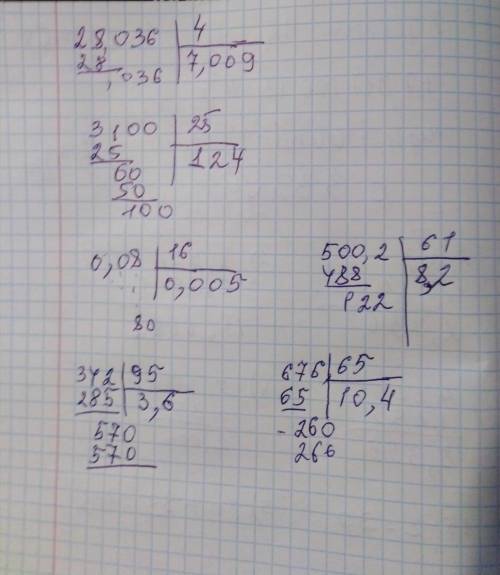 28,036 | 4
28 | 7,009
,036
3,00 | 25
25 | 124
60
50
100
0,08 | 16
0,005
80
500,2 | 61
488 | 8,2
122
342 | 95
285 | 3,6
570
570
676 | 65
65 | 10,4
-260
266